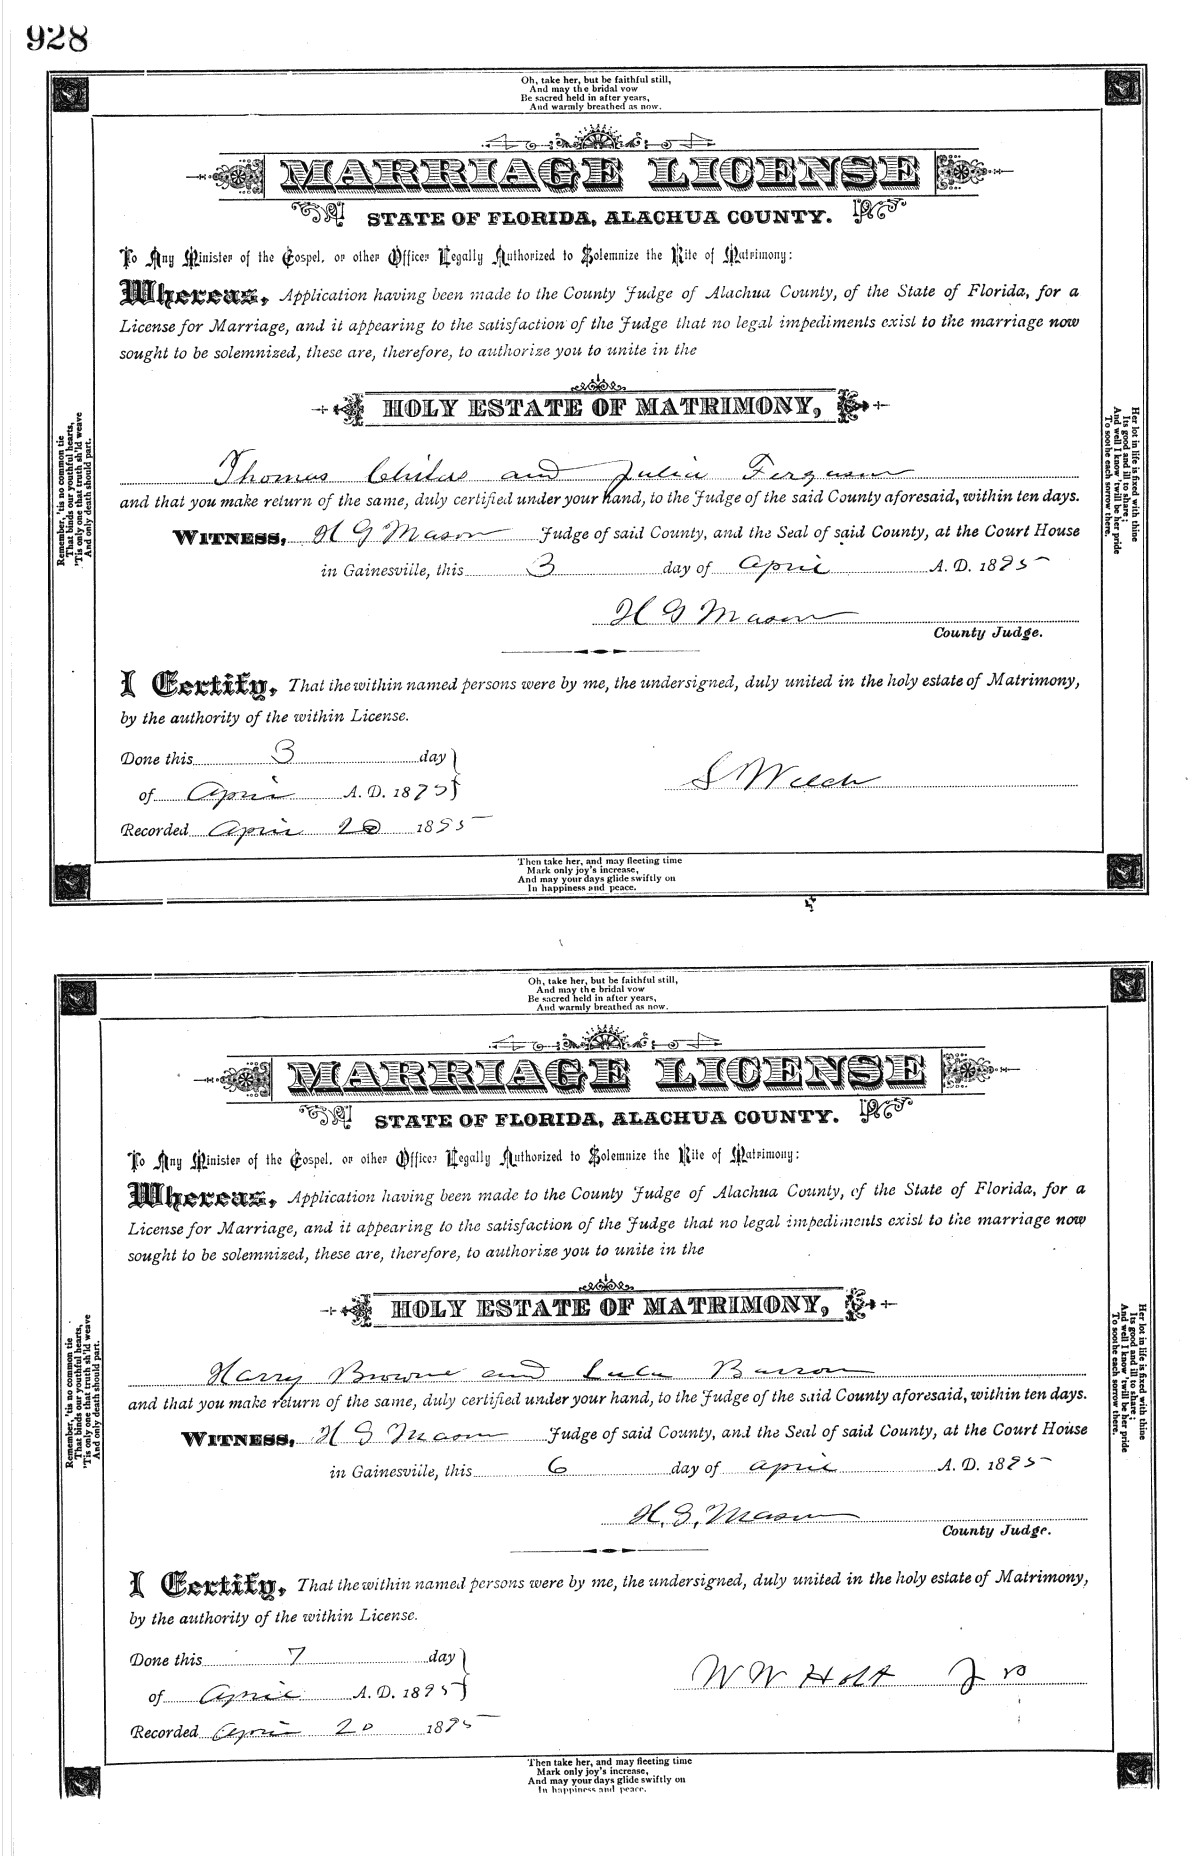 928
Oh, take her, but be faithful still,
And may the bridal vow
Be sacred held in after years,
And warmly breathed as now.
MARRIAGE LICENSE
STATE OF FLORIDA, ALACHUA COUNTY.
To Any Minister of the Gospel, or other Officer Legally Authorized to Solemnize the Rite of Matrimony:
Whereas, Application having been made to the County Judge of Alachua County, of the State of Florida, for a
License for Marriage, and it appearing to the satisfaction of the Judge that no legal impediments exist to the marriage now
sought to be solemnized, these are, therefore, to authorize you to unite in the
HOLY ESTATE OF MATRIMONY,
Thomas Childs and Julia Ferguson
and that you make return of the same, duly certified under your hand, to the Judge of the said County aforesaid, within ten days.
WITNESS, H G Mason Judge of said County, and the Seal of said County, at the Court House
in Gainesville, this 3 day of April A. D. 1895
H G Mason
County Judge.
I Certify, That the within named persons were by me, the undersigned, duly united in the holy estate of Matrimony,
by the authority of the within License.
Done this 3 day
of April A. D. 1895
S Welch
Recorded April 20 1895
Then take her, and may fleeting time
Mark only joy's increase,
And may your days glide swiftly on
In happiness and peace.
Remember, 'tis no common tie
That binds our youthful hearts,
'Tis only one that truth sh'ld weave
And only death should part.
Her lot in life is fixed with thine
Its good and ill to share;
And well I know 'twill be her pride
To soothe each sorrow there.
Oh, take her, but be faithful still,
And may the bridal vow
Be sacred held in after years,
And warmly breathed as now.
MARRIAGE LICENSE
STATE OF FLORIDA, ALACHUA COUNTY.
To Any Minister of the Gospel, or other Officer Legally Authorized to Solemnize the Rite of Matrimony:
Whereas, Application having been made to the County Judge of Alachua County, of the State of Florida, for a
License for Marriage, and it appearing to the satisfaction of the Judge that no legal impediments exist to the marriage now
sought to be solemnized, these are, therefore, to authorize you to unite in the
HOLY ESTATE OF MATRIMONY,
Harry Browne and Lula Barron
and that you make return of the same, duly certified under your hand, to the Judge of the said County aforesaid, within ten days.
WITNESS, H G Mason Judge of said County, and the Seal of said County, at the Court House
in Gainesville, this 6 day of April A. D. 1895
H. G. Mason
County Judge.
I Certify, That the within named persons were by me, the undersigned, duly united in the holy estate of Matrimony,
by the authority of the within License.
Done this 7 day
of April A. D. 1895
W W Holt
Recorded April 20 1895
Then take her, and may fleeting time
Mark only joy's increase,
And may your days glide swiftly on
In happiness and peace.
Remember, 'tis no common tie
That binds our youthful hearts,
'Tis only one that truth sh'ld weave
And only death should part.
Her lot in life is fixed with thine
Its good and ill to share;
And well I know 'twill be her pride
To soothe each sorrow there.